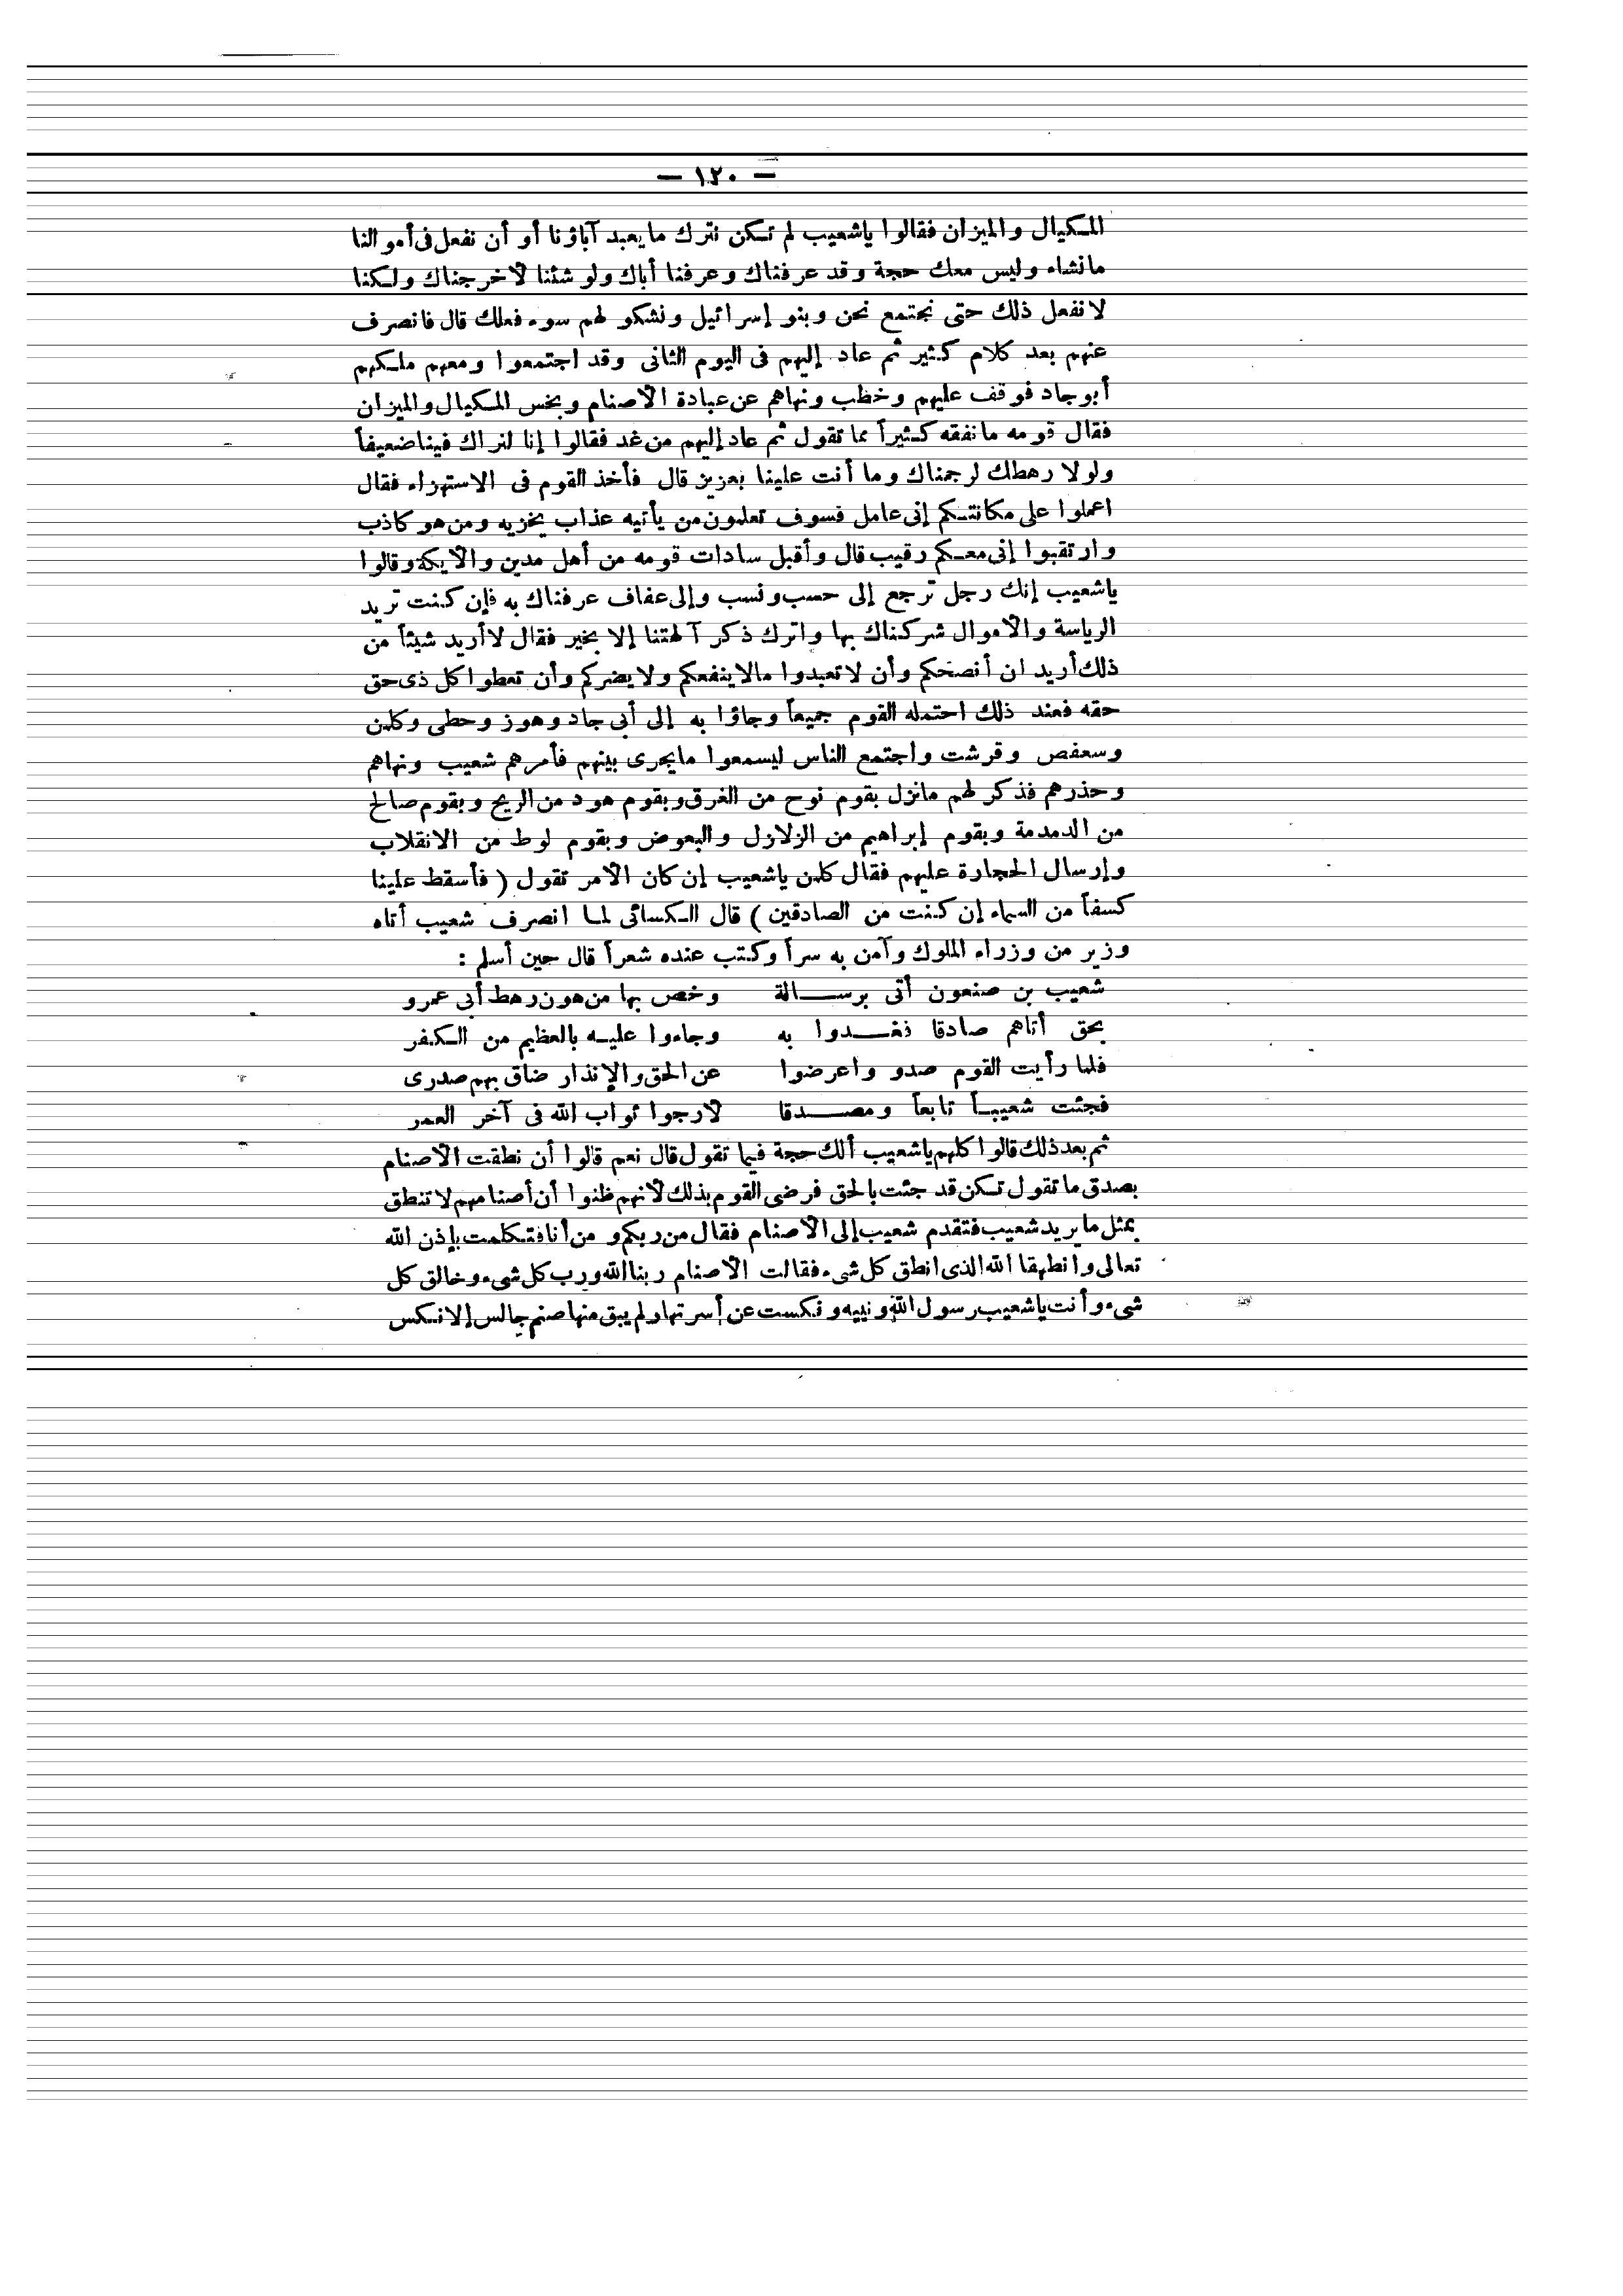 — ١٢٠ —
المكيال والميزان فقالوا ياشعيب لم تكن نترك مايعبد آباؤنا أو أن نفعل فى أموالنا
مانشاء وليس معك حجة وقد عرفناك وعرفنا أباك ولو شئنا لاخرجناك ولكنا
لا نفعل ذلك حتى نجتمع نحن وبنو إسرائيل ونشكو لهم سوء فعلك قال فانصرف
عنهم بعد كلام كثير ثم عاد إليهم فى اليوم الثانى وقد اجتمعوا ومعهم ملكهم
أبو جاد فوقف عليهم وخطب ونهاهم عن عبادة الاصنام وبخس المكيال والميزان
فقال قومه مانفقه كثيراً مما تقول ثم عاد إليهم من غد فقالوا إنا لنراك فينا ضعيفاً
ولولا رهطك لرجمناك وما أنت علينا بعزيز قال فأخذ القوم فى الاستهزاء فقال
اعملوا على مكانتكم إنى عامل فسوف تعلمون من يأتيه عذاب يخزيه ومن هو كاذب
وارتقبوا إنى معكم رقيب قال وأقبل سادات قومه من أهل مدين والايكة وقالوا
ياشعيب إنك رجل ترجع إلى حسب ونسب وإلى عفاف عرفناك به فإن كنت تريد
الرياسة والاموال شركناك بها واترك ذكر آلهتنا إلا بخير فقال لا أريد شيئاً من
ذلك أريد ان أنصحكم وأن لا تعبدوا مالا ينفعكم ولا يضركم وأن تعطوا كل ذى حق
حقه فعند ذلك احتمله القوم جميعاً وجاؤا به إلى أبى جاد وهوز وحطى وكلمن
وسعفص وقرشت واجتمع الناس ليسمعوا مايجرى بينهم فأمرهم شعيب ونهاهم
وحذرهم فذكر لهم مانزل بقوم نوح من الغرق وبقوم هود من الريح وبقوم صالح
من الدمدمة وبقوم إبراهيم من الزلازل والبعوض وبقوم لوط من الانقلاب
وإرسال الحجارة عليهم فقال كلمن ياشعيب إن كان الامر تقول ( فأسقط علينا
كسفاً من السماء إن كنت من الصادقين ) قال الكسائى لما انصرف شعيب أتاه
وزير من وزراء الملوك وآمن به سراً وكتب عنده شعراً قال حين أسلم :
شعيب بن صنعون أتى برسالة وخص بها من هون رهط أبى عمرو
بحق أتاهم صادقا فغدوا به وجاءوا عليه بالعظيم من الكفر
فلما رأيت القوم صدو واعرضوا عن الحق والإنذار ضاق بهم صدرى
فجئت شعيباً تابعاً ومصدقا لارجوا ثواب الله فى آخر العمر
ثم بعد ذلك قالوا كلهم ياشعيب ألك حجة فيما تقول قال نعم قالوا أن نطقت الاصنام
بصدق ما تقول تكن قد جئت بالحق فرضى القوم بذلك لانهم ظنوا أن أصنامهم لا تنطق
بمثل ما يريد شعيب فتقدم شعيب إلى الاصنام فقال من ربكم ومن أنا فتكلمت بإذن الله
تعالى وانطيقا الله الذى انطق كل شىء فقالت الاصنام ربنا الله ورب كل شىء وخالق كل
شىء وأنت ياشعيب رسول الله ونبيه ونكست عن أسرتها ولم يبق منها صنم جالس إلا نكس